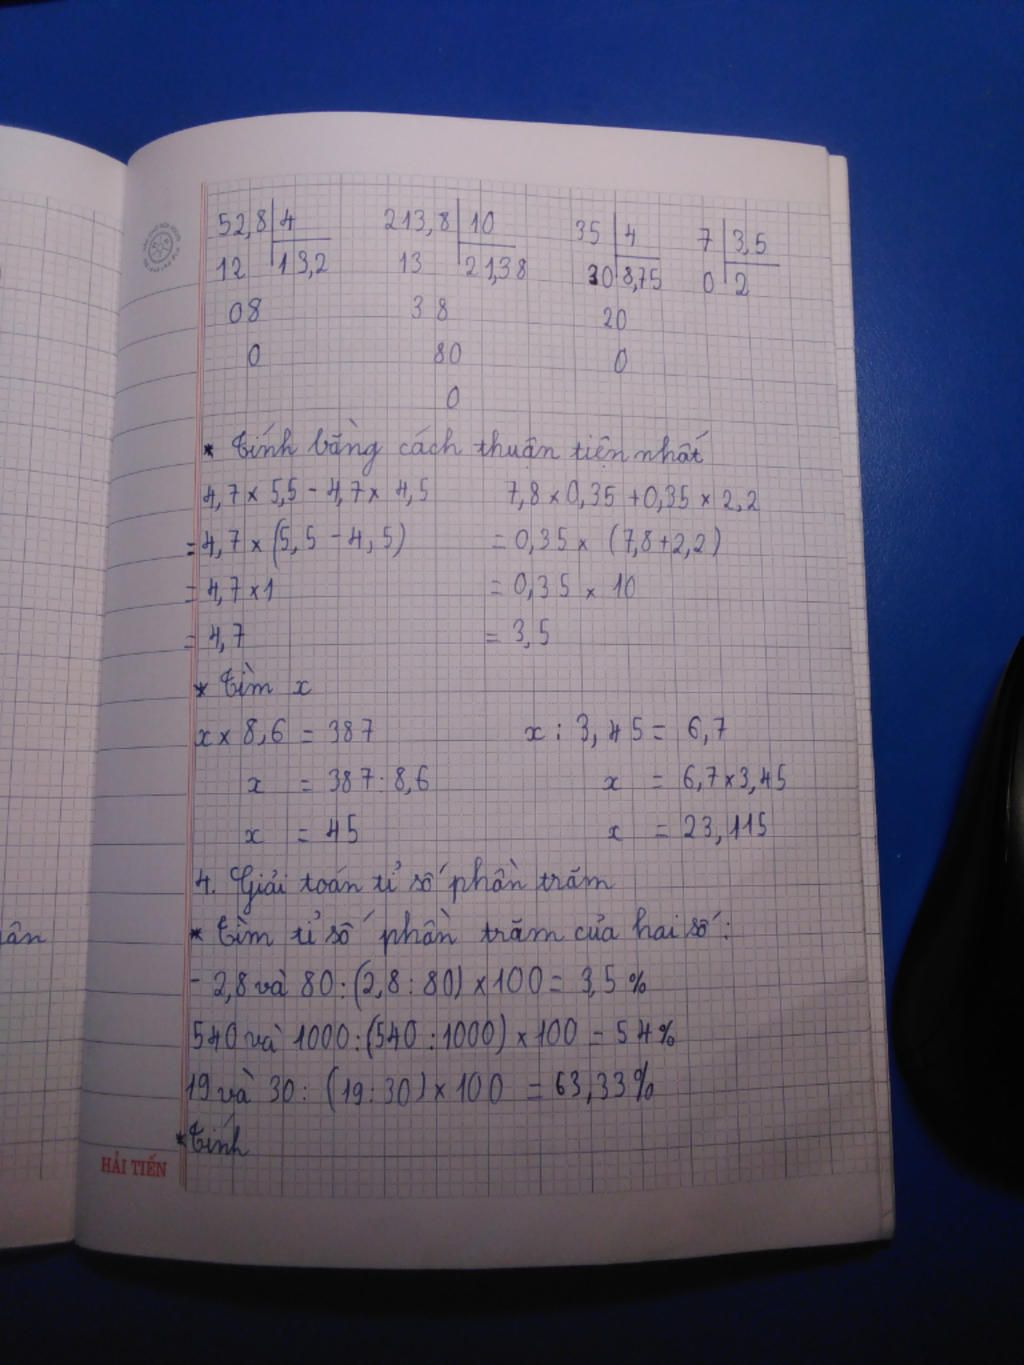 52,8 4 213,8 10 35 4 7 3,5
12 13,2 13 21,38 30 8,75 0 2
08 38 20
0 80 0
0
* Tính bằng cách thuận tiện nhất
4,7 × 5,5 - 4,7 × 4,5 7,8 × 0,35 + 0,35 × 2,2
= 4,7 × (5,5 - 4,5) = 0,35 × (7,8 + 2,2)
= 4,7 × 1 = 0,35 × 10
= 4,7 = 3,5
* Tìm x
x × 8,6 = 387 x : 3,45 = 6,7
x = 387 : 8,6 x = 6,7 × 3,45
x = 45 x = 23,115
4. Giải toán tỉ số phần trăm
* Tìm tỉ số phần trăm của hai số :
- 2,8 và 80 : (2,8 : 80) × 100 = 3,5 %
540 và 1000 : (540 : 1000) × 100 = 54 %
19 và 30 : (19 : 30) × 100 = 63,33 %
* Tính
HẢI TIẾN